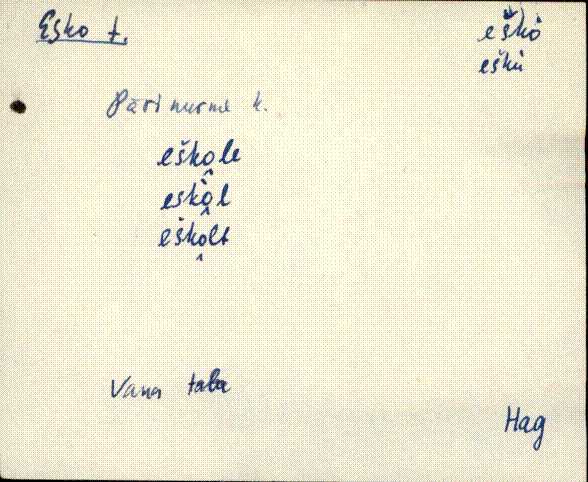 Esko t.
eškò
eškù
Pärinurme k.
eško̭le
eskò̭l
eško̭lt
Vana talu
Hag